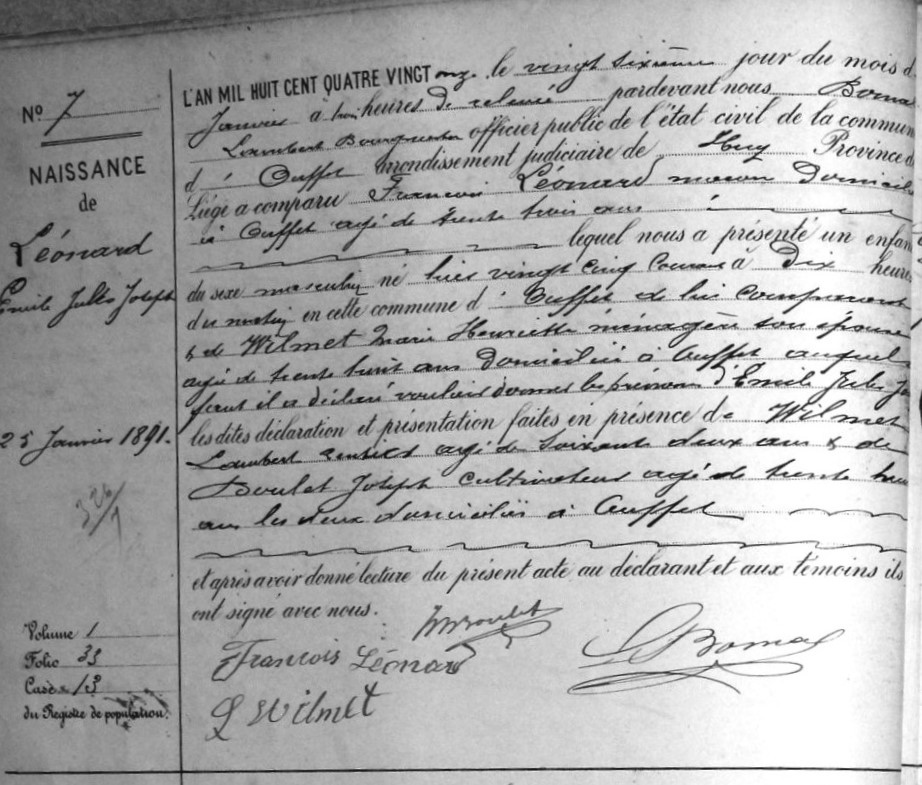 N° 7
NAISSANCE
de
Léonard
Emile Jules Joseph
25 Janvier 1891.
326/7
Volume 1
Folio 35
Case 15
du Registre de population.
L'AN MIL HUIT CENT QUATRE VINGT onze le vingt sixième jour du mois d
Janvier à trois heures de relevée pardevant nous Borna
Lambert officier public de l'état civil de la commun
d' Ouffet arrondissement judiciaire de Huy Province d
Liége a comparu François Léonard maçon domicil
à Ouffet agé de trente trois ans
lequel nous a présenté un enfan
du sexe masculin né hier vingt cinq courant à dix heures
du matin en cette commune d' Ouffet de lui comparant
& de Wilmet Marie Henriette ménagère son épouse
agée de trente huit ans domiciliée à Ouffet auquel
il a déclaré vouloir donner les prénoms d'Emile Jules Jo
les dites déclaration et présentation faites en présence de Wilmet
Lambert rentier agé de soixante deux ans & de
Doulet Joseph cultivateur agé de trente
ans les deux domiciliés à Ouffet
et après avoir donné lecture du présent acte au déclarant et aux témoins ils
ont signé avec nous.
François Léonard
L Wilmet